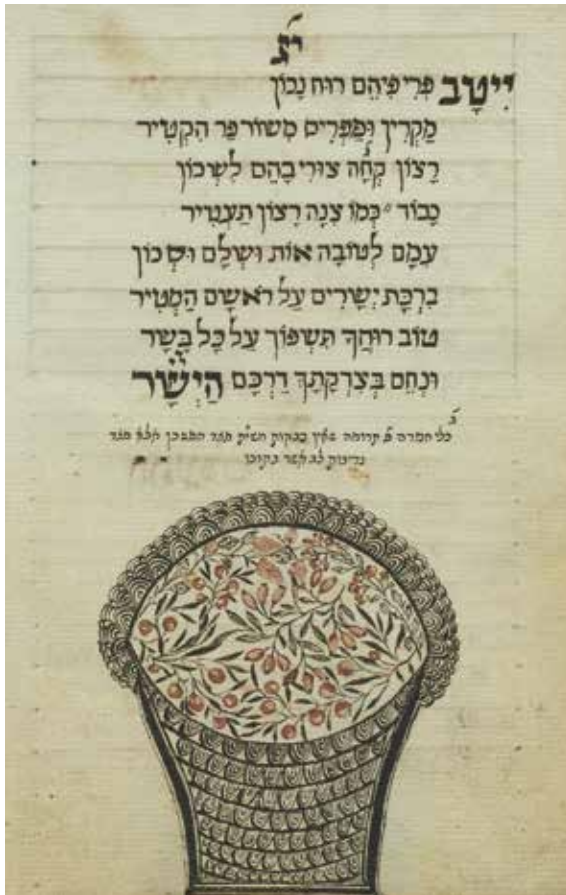 יג
יִיטַב פְּרִי פִּיהֶם רוּחַ נָכוֹן
מַקְרִין וּמַפְרִים מִשּׁוֹר פַּר הַקְטִיר
רָצוֹן קְחָה צוּרִי בָהֶם לִשְׁכּוֹן
כָּבוֹד כְּמוֹ צִנָּה רָצוֹן תַּעְטִיר
עִמָּם לְטוֹבָה אוֹת וּשְׁלַם וּסְכוֹן
בִּרְכַּת יְשָׁרִים עַל רֹאשָׁם הַמְטִיר
טוֹב רוּחֲךָ תִּשְׁפּוֹךְ עַל כָּל בָּשָׂר
וּנְחֵם בְּצִדְקָתְךָ דַרְכָּם הַיָּשָׁר
כלי חמדה פ תרומה שאין מגד המשכן אלא מגד
נדיבות לב אשר